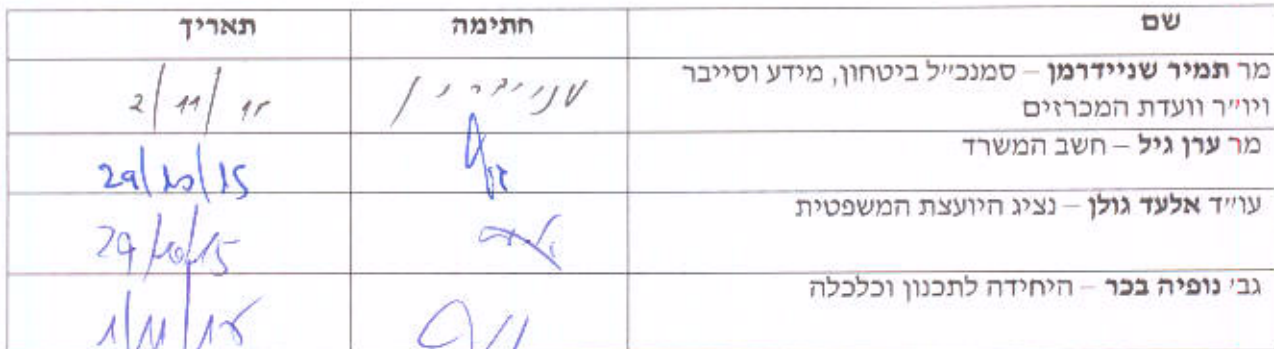 שם חתימה תאריך
מר תמיר שניידרמן – סמנכ״ל ביטחון, מידע וסייבר
ויו״ר וועדת המכרזים
2/11/15
מר ערן גיל – חשב המשרד
29/10/15
עו״ד אלעד גולן – נציג היועצת המשפטית
29/10/15
גבי נופיה בכר – היחידה לתכנון וכלכלה
1/11/15